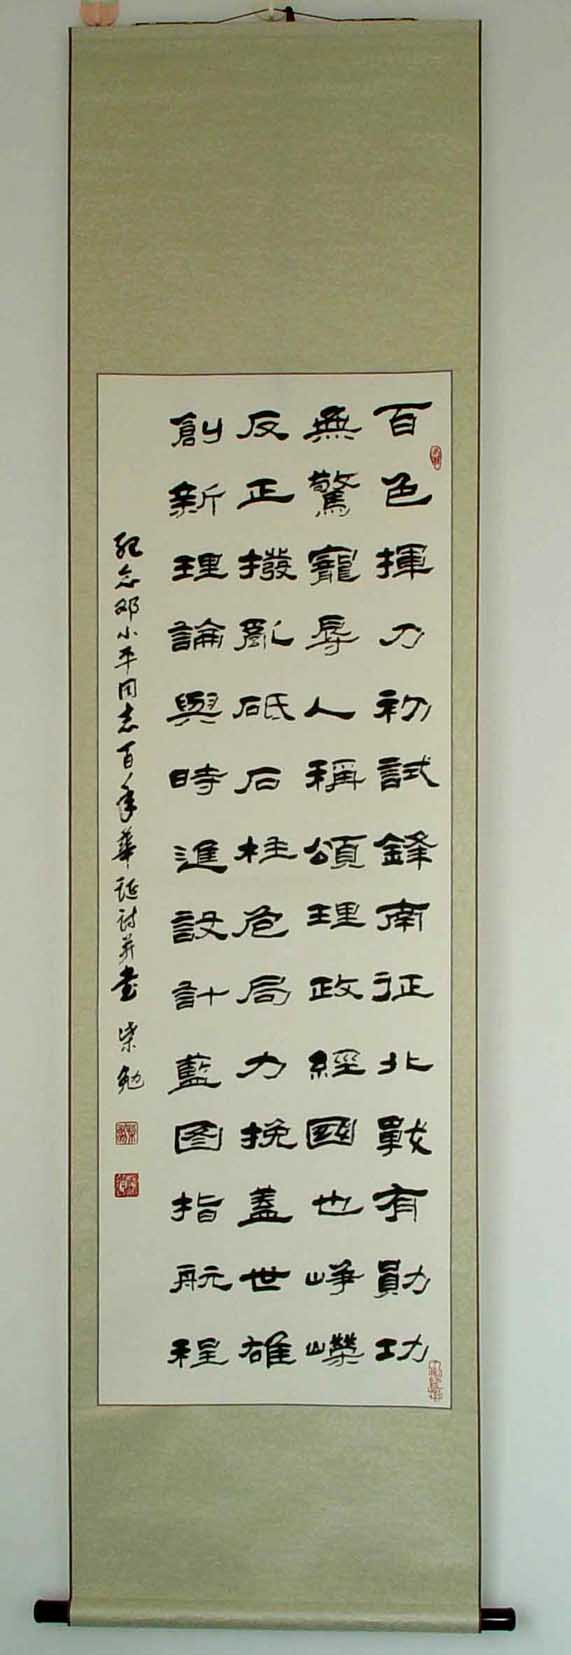 百色揮刀初試鋒南征北戰有勛功
無驚寵辱人稱頌理政經國也崢嶸
反正撥亂砥石柱危局力挽蓋世雄
創新理論與時進設計藍图指航程
紀念邓小平同志百年華诞诗并书 柴勉